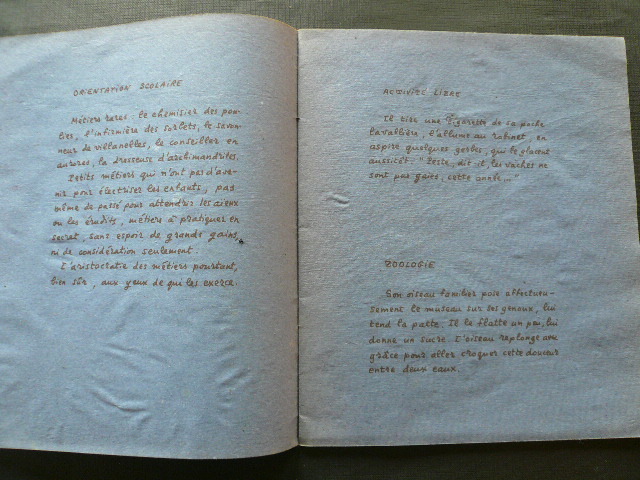 ORIENTATION SCOLAIRE
Métiers rares : le chemisier des pou-
lies, l'infirmière des sorbets, le savon-
neur de villanelles, le conseiller en
aurores, la dresseuse d'archimandrites.
Petits métiers qui n'ont pas d'ave-
nir pour électriser les enfants, pas
même de passé pour attendrir les aïeux
ou les érudits, métiers à pratiquer en
secret, sans espoir de grands gains,
ni de considération seulement.
L'aristocratie des métiers pourtant,
bien sûr, aux yeux de qui les exerce.
ACTIVITÉ LIBRE
Il tire une cigarette de sa poche
lavallière, l'allume au robinet, en
aspire quelques gerbes, qui le glacent
aussitôt. "Peste, dit-il, les vaches ne
sont pas gaies, cette année..."
ZOOLOGIE
Son oiseau familier pose affectueu-
sement le museau sur les genoux, lui
tend la patte. Il le flatte un peu, lui
donne un sucre. L'oiseau replonge avec
grâce pour aller croquer cette douceur
entre deux eaux.